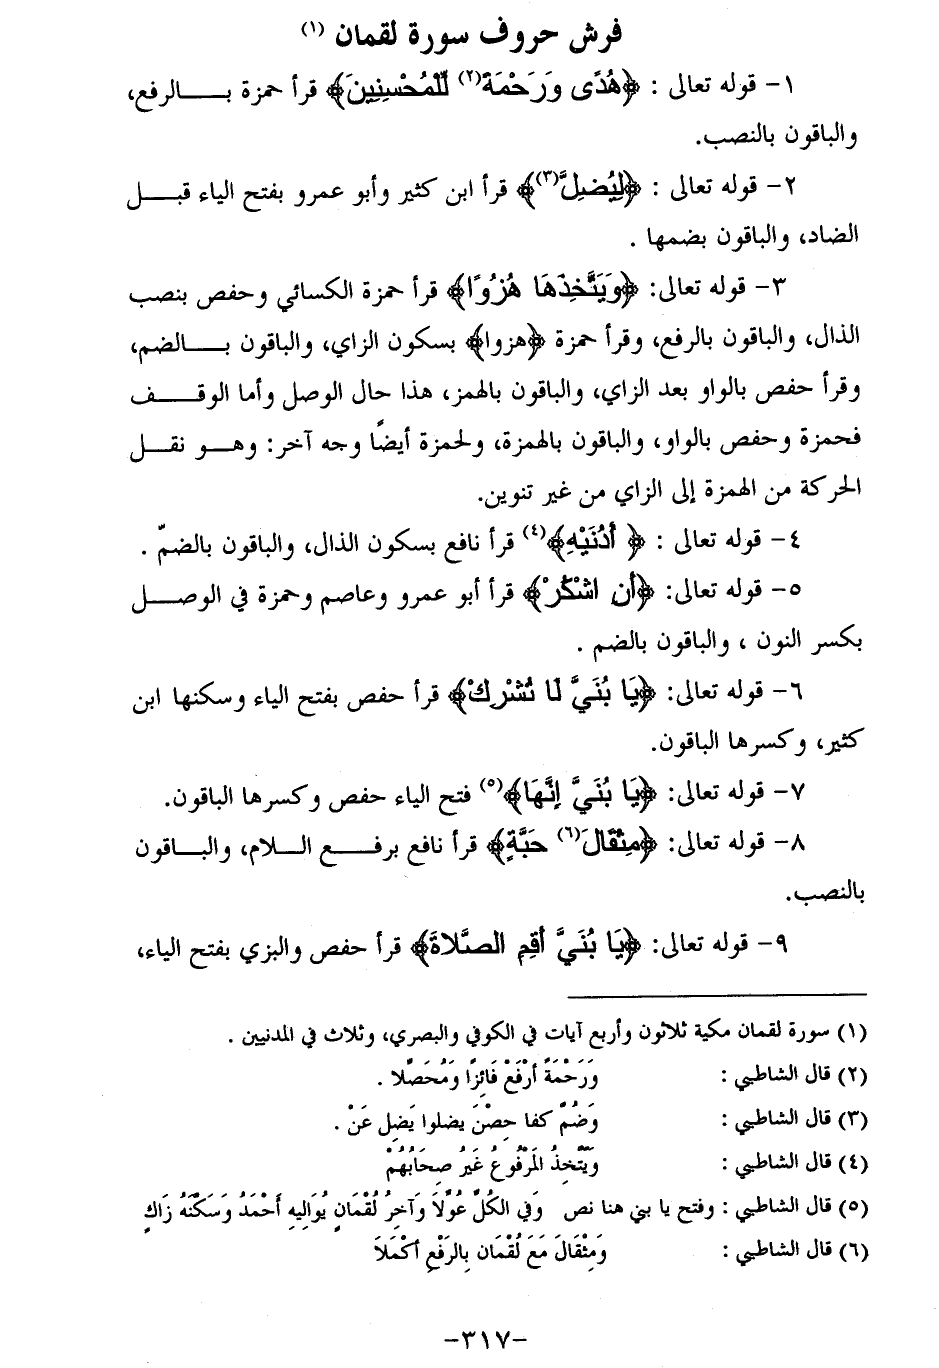 فرش حروف سورة لقمان (١)
١- قوله تعالى : ﴿هُدًى وَرَحْمَةً(٢) لِّلْمُحْسِنِينَ﴾ قرأ حمزة بـالرفع،
والباقون بالنصب.
٢- قوله تعالى : ﴿لِيُضِلَّ(٣)﴾ قرأ ابن كثير وأبو عمرو بفتح الياء قبـل
الضاد، والباقون بضمها .
٣- قوله تعالى: ﴿وَيَتَّخِذَهَا هُزُوًا﴾ قرأ حمزة الكسائي وحفص بنصب
الذال، والباقون بالرفع، وقرأ حمزة ﴿هزوا﴾ بسكون الزاي، والباقون بـالضم،
وقرأ حفص بالواو بعد الزاي، والباقون بالهمز، هذا حال الوصل وأما الوقـف
فحمزة وحفص بالواو، والباقون بالهمزة، ولحمزة أيضًا وجه آخر: وهـو نقـل
الحركة من الهمزة إلى الزاي من غير تنوين.
٤- قوله تعالى : ﴿ أُذُنَيْهِ﴾(٤) قرأ نافع بسكون الذال، والباقون بالضمّ .
٥- قوله تعالى: ﴿أَنِ اشْكُرْ﴾ قرأ أبو عمرو وعاصم وحمزة في الوصـل
بكسر النون ، والباقون بالضم .
٦- قوله تعالى: ﴿يَا بُنَيَّ لَا تُشْرِكْ﴾ قرأ حفص بفتح الياء وسكنها ابن
كثير، وكسرها الباقون.
٧- قوله تعالى: ﴿يَا بُنَيَّ إِنَّهَا﴾(٥) فتح الياء حفص وكسرها الباقون.
٨- قوله تعالى: ﴿مِثْقَالَ(٦) حَبَّةٍ﴾ قرأ نافع برفـع الـلام، والبـاقون
بالنصب.
٩- قوله تعالى: ﴿يَا بُنَيَّ أَقِمِ الصَّلاةَ﴾ قرأ حفص والبزي بفتح الياء،
(١) سورة لقمان مكية ثلاثون وأربع آيات في الكوفي والبصري، وثلاث في المدنيين .
(٢) قال الشاطبي : وَرَحْمَةً أرْفَعْ فَائِزًا وَمُحَصِّلا .
(٣) قال الشاطبي : وَضُمَّ كفا حِصْنَ يضلوا يَضِل عَنْ .
(٤) قال الشاطبي : وَيَتَّخِذُ المَرْفُوعُ غَيرُ صِحَابُهُمْ
(٥) قال الشاطبي : وفتح يا بني هنا نص وَفي الكُلِّ عُوِّلَا وَآخِرُ لُقْمَانٍ يُوَالِيهِ أَحْمَدُ وَسَكْنَهُ زَاكٍ
(٦) قال الشاطبي : وَمِثْقَالَ مَعَ لُقْمَان بِالرَفْعِ أكْمَلاَ
-٣١٧-